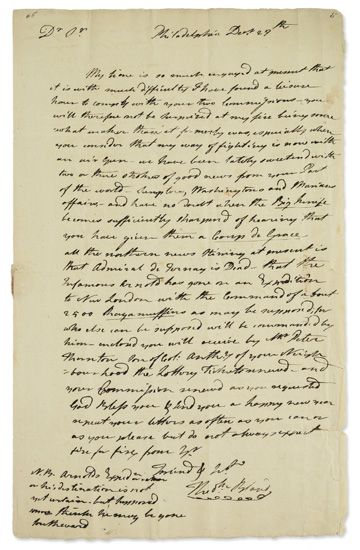 Dr Sr Philadelphia Decr 29th
My time is so much engaged at present that
it is with much difficulty I have found a leisure
hour to comply with your two Commissions - you
will therefore not be surprized at my fire being some
what weaker than it formerly was, especially when
you consider that my way of fighting is now with
an air Gun - we have been lately sweetend with
two or three strokes of good news from your Part
of the world - Sumpters, Washingtons and Marions
affairs - and have no doubt when the
becomes sufficiently sharpend of hearing that
you have given them a Coup de Grace -
all the northern news stirring at present is
that Admiral de Ternay is Dead - that the
Infamous Arnold has gone on an Expedition
to New London with the Command of about
2500 Ragamuffins as may be supposed for
who else can be supposed will be commanded by
him - inclosed you will receive by Mr Peter
Thornton Son of Col: Anthy of your Neigh-
bourhood the Lottery Tickets renewd - and
your Commission renewd as you requested
God Bless you & send you a happy new year
repeat your letters as often as you can or
as you please but do not always expect
fire for fire from Yr
Friend &
Theok: Bland
N.B. Arnolds Expedition
or his destination is not
yet certain - but supposed
some think he may be gone
Southward